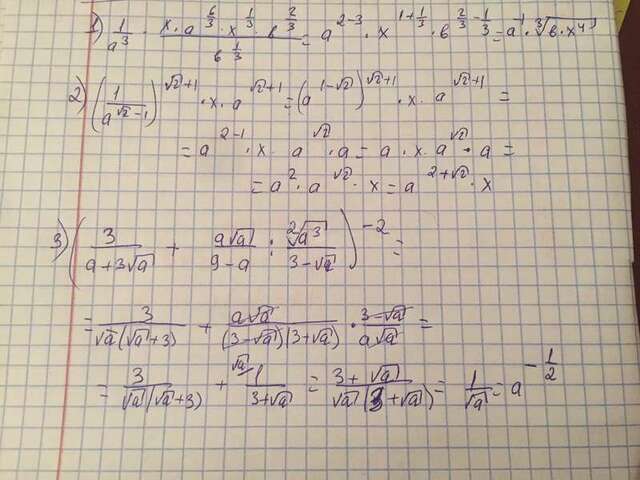 1) 1/a³ · (x · a^(6/3) · x^(1/3) · в^(2/3))/в^(1/3) = a^(2-3) · x^(1+1/3) · в^(2/3-1/3) = a^(-1) · ∛(в · x⁴)
2) (1/a^(√2-1))^(√2+1) · x · a^(√2+1) = (a^(1-√2))^(√2+1) · x · a^(√2+1) =
= a^(2-1) · x · a^(√2) · a = a · x · a^(√2) · a =
= a² · a^(√2) · x = a^(2+√2) · x
3) (3/(a+3√a) + a√a/(9-a) : ²√(a³)/(3-√a))^(-2) =
= 3/(√a(√a+3)) + a√a/((3-√a)(3+√a)) · (3-√a)/(a√a) =
= 3/(√a(√a+3)) + √a/ 1/(3+√a) = (3+√a)/(√a(3+√a)) = 1/√a = a^(-1/2)